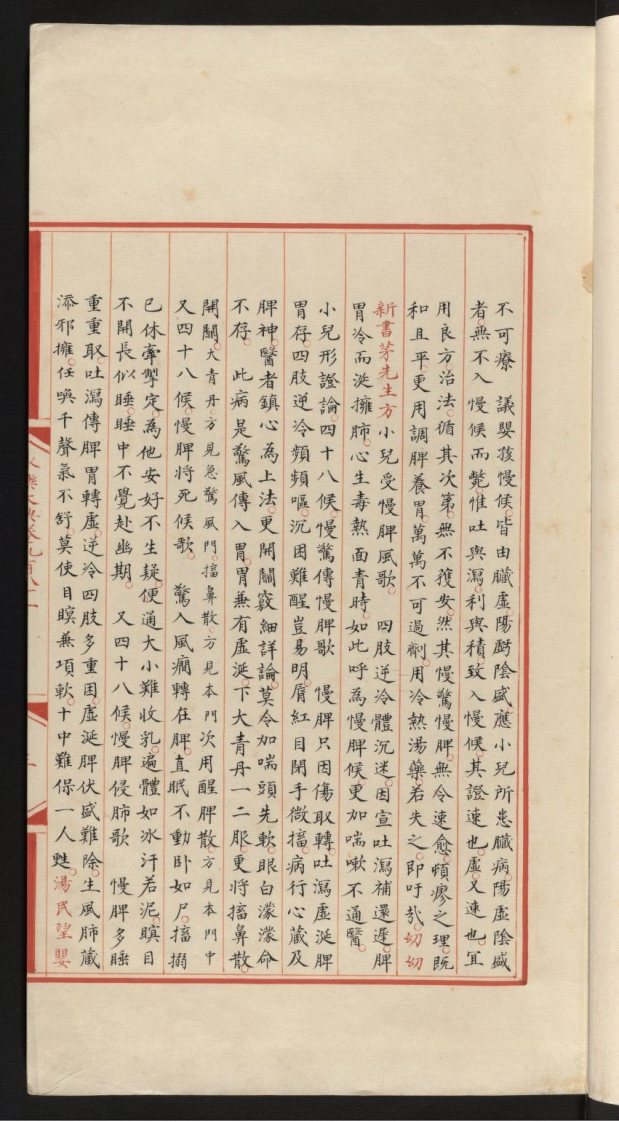 不可療　議嬰孩慢候皆由臟虛陽虧陰盛應小兒所患臟病陽虛陰盛
者無不入慢候而斃惟吐與瀉利與積致入慢候其證速也虛又速也宜
用良方治法循其次第無不獲安然其慢驚慢脾無令速愈頓瘳之理既
和且平更用調脾養胃萬萬不可過劑用冷熱湯藥若失之即吁哉切切
新書茅先生方小兒受慢脾風歌　四肢逆冷體沉迷因宣吐瀉補還遲脾
胃冷而涎擁肺心生毒熱面青時如此呼為慢脾候更加喘嗽不通醫
小兒形證論四十八候慢驚傳慢脾歌　慢脾只因傷取轉吐瀉虛涎脾
胃存四肢逆冷頻頻嘔沉困難醒豈易明脣紅目閉手微搐病行心藏及
脾神醫者鎮心為上法更開關竅細詳論莫令加喘頭先軟眼白濛濛命
不存　此病是驚風傳入胃胃兼有虛涎下大青丹一二服更將搐鼻散
開關大青丹方見急驚風門搐鼻散方見本門次用醒脾散方見本門中
又四十八候慢脾將死候歌　驚入風癎轉在脾直眠不動卧如尸搐搦
已休牽掣定為他安好不生疑便通大小難收乳遍體如冰汗若泥瞑目
不開長似睡睡中不覺赴幽期　又四十八候慢脾侵肺歌　慢脾多睡
重重取吐瀉傳脾胃轉虛逆冷四肢多重困虛涎脾伏盛難除生風肺藏
添邪擁任喚千聲氣不舒莫使目瞑兼項軟十中難保一人甦湯民望嬰
永樂大典卷九百八十一